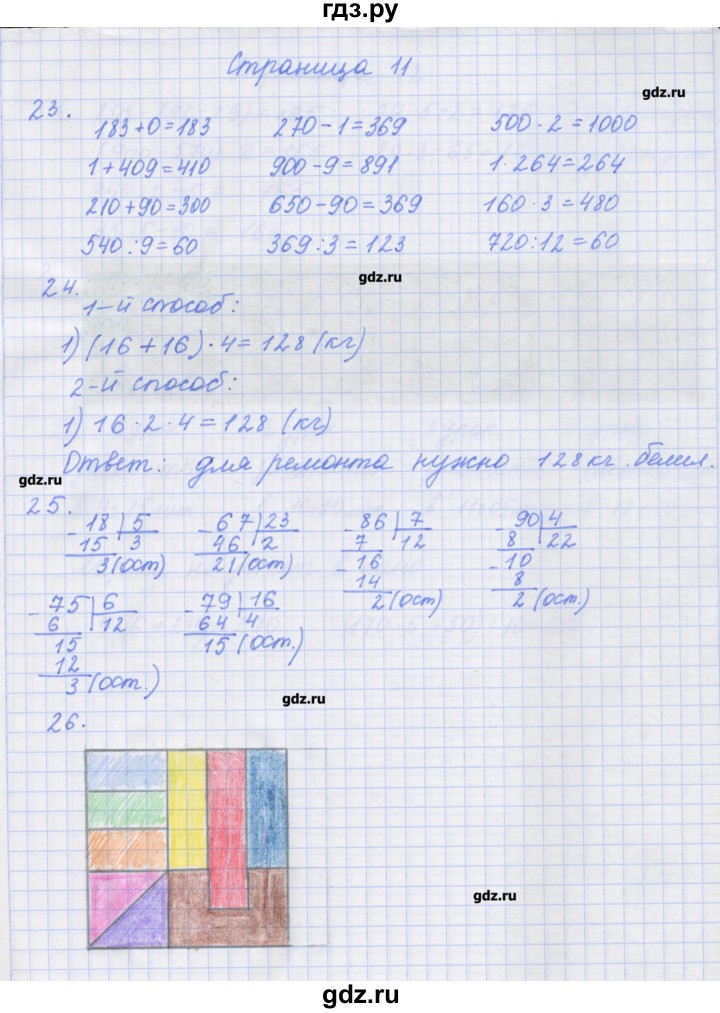 гдз.ру
Страница 11
gdz.ru
23.
183+0=183 270-1=369 500·2=1000
1+409=410 900-9=891 1·264=264
210+90=300 650-90=369 160·3=480
540:9=60 369:3=123 720:12=60
gdz.ru
24.
1-й способ:
1) (16+16)·4=128 (кг)
2-й способ:
1) 16·2·4=128 (кг)
Ответ: для ремонта нужно 128 кг белил.
gdz.ru
25.
-18 5 -67 23 -86 7 -90 4
15 3 46 2 7 12 8 22
3(ост) 21(ост) -16 -10
14 8
2(ост) 2(ост.)
-75 6 -79 16
6 12 64 4
15 15(ост.)
12
3(ост.)
gdz.ru
26.
gdz.ru
gdz.ru